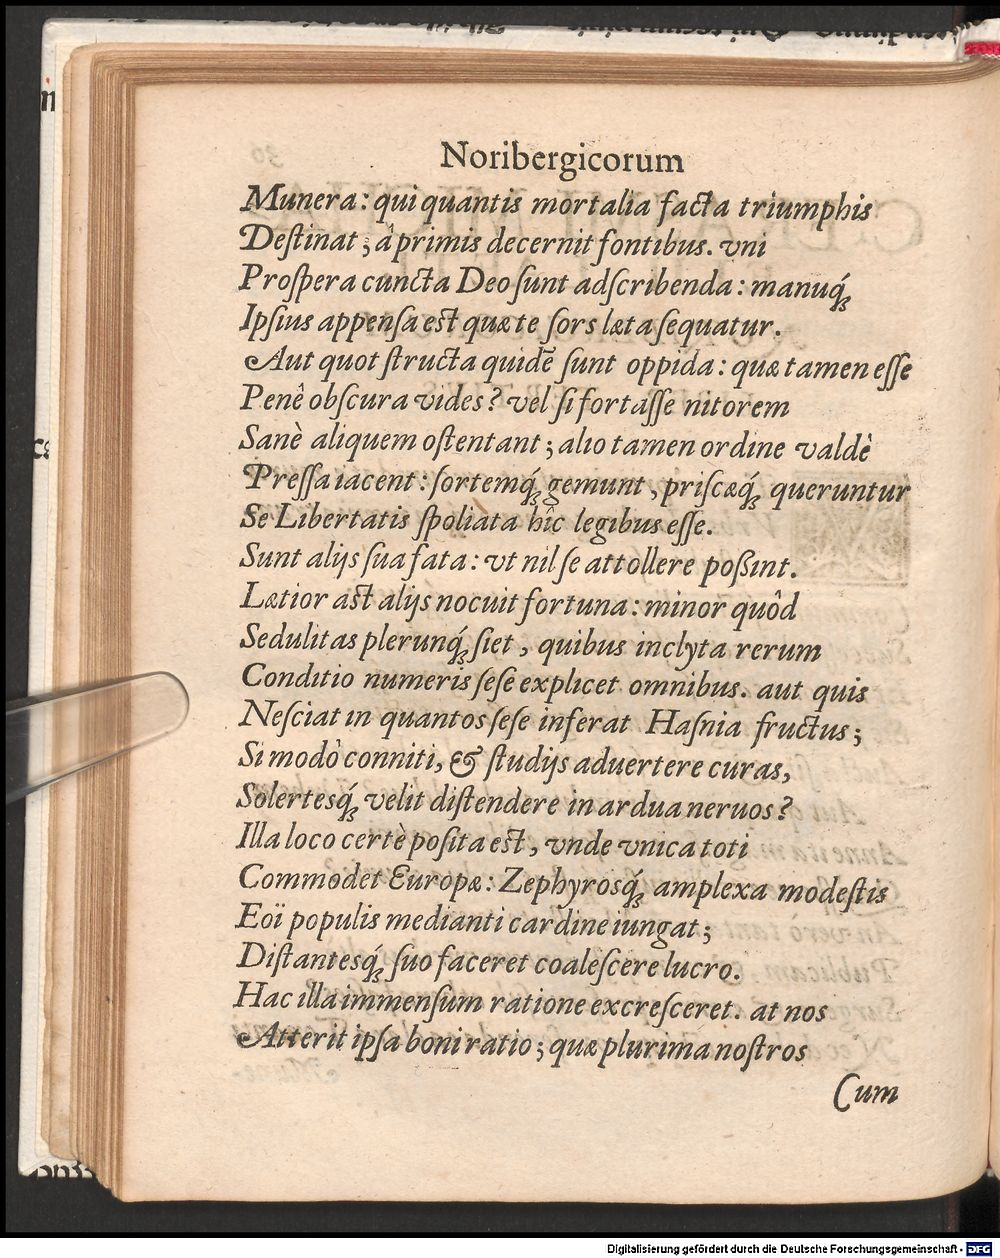 Noribergicorum
Munera: qui quantis mortalia facta triumphis
Deſtinat; à primis decernit fontibus. vni
Proſpera cuncta Deo ſunt adſcribenda: manuq́ꝫ
Ipſius appenſa est quæ te ſors læta ſequatur.
Aut quot ſtructa quidē ſunt oppida: quæ tamen eſſe
Penê obſcura vides? vel ſi fortaſſe nitorem
Sanè aliquem oſtentant; alio tamen ordine valdè
Preſſa iacent: ſortemq́ꝫ gemunt, priſcæq́ꝫ queruntur
Se Libertatis ſpoliata hîc legibus eſſe.
Sunt alijs ſua fata: vt nil ſe attollere poßint.
Lætior ast alijs nocuit fortuna: minor quôd
Sedulitas plerunq́ꝫ ſiet, quibus inclyta rerum
Conditio numeris ſeſe explicet omnibus. aut quis
Neſciat in quantos ſeſe inferat Haſnia fructus;
Si modò conniti, & ſtudijs aduertere curas,
Solertesq́ꝫ velit diſtendere in ardua neruos?
Illa loco certè poſita est, vnde vnica toti
Commodet Europæ: Zephyrosq́ꝫ amplexa modeſtis
Eoï populis medianti cardine iungat;
Diſtantesq́ꝫ ſuo faceret coaleſcere lucro.
Hac illa immenſum ratione excreſceret. at nos
Atterit ipſa boni ratio; quæ plurima noſtros
Cum
Digitalisierung gefördert durch die Deutsche Forschungsgemeinschaft - DFG